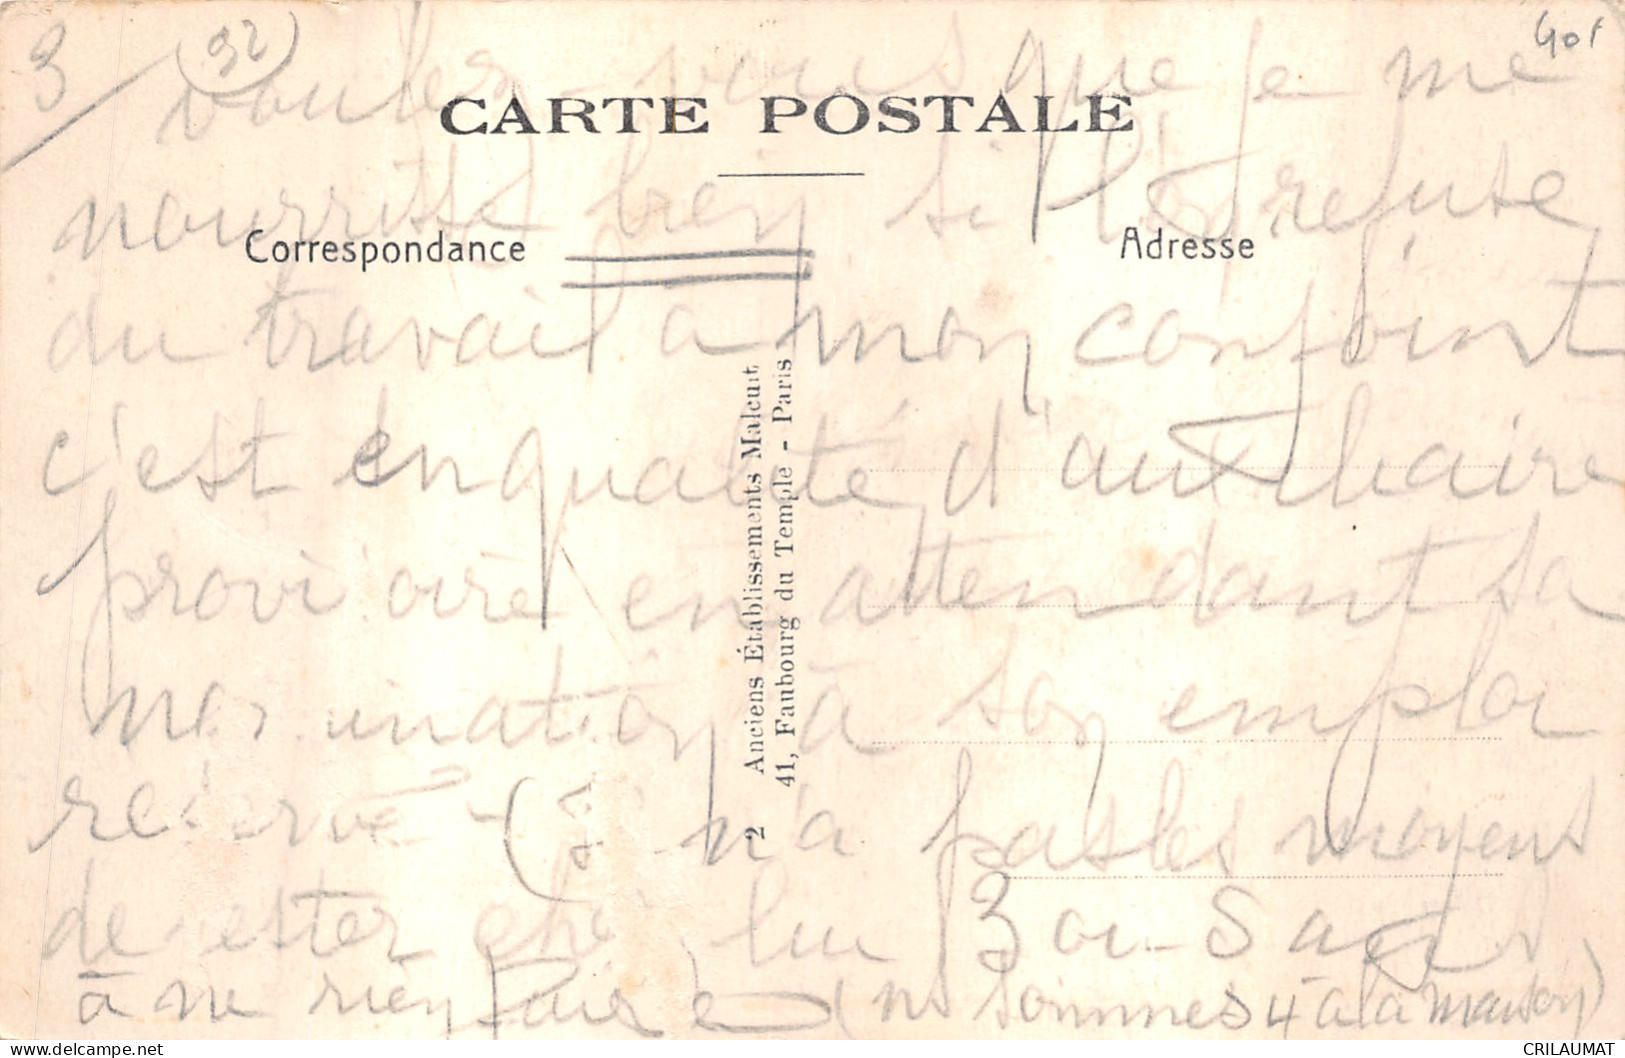 3
(92)
401
voulez-vous que je me
CARTE POSTALE
nourrisse bien si l'on refuse
Correspondance
Adresse
du travail a mon conjoint
c'est en qualité d'auxiliaire
provisoire en attendant sa
nomination à son emploi
réservé - n'a pas les moyens
de rester chez lui 3 ou 5 ans
à ne rien faire (ns sommes 4 à la maison)
2 Anciens Établissements Malcuit
41, Faubourg du Temple - Paris
CRILAUMAT